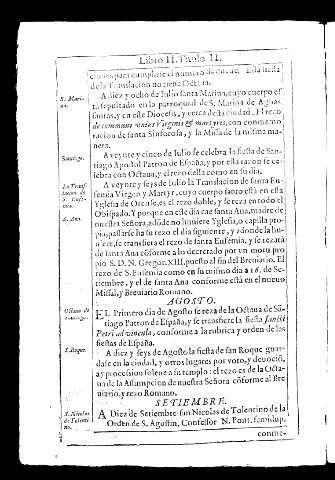 Libro II. Titulo II.
ciones para cumplirse el numero de nueue. Esta fiesta
de la Translacion no tiene Octaua.
A diez y ocho de Iulio santa Marina, cuyo cuerpo es
S. Mari-
na.
tà sepultado en la parroquial de S. Marina de Aguas
santas, y en este Diocesis, y cerca desta ciudad. El rezo
de communi vnius Virginis & martyres, con commemo
racion de santa Sinforosa, y la Missa de la misma ma-
nera.
Santiago.
A veynte y cinco de Iulio se celebra la fiesta de San-
tiago Apostol Patron de España, y por esta razon se ce-
lebra con Octaua, y el rezo della como en su dia.
La Transf-
lacion de
S. Eufe-
mia.
A veynte y seys de Iulio la Translacion de santa Eu
femia Virgen y Martyr, cuyo cuerpo santo està en esta
Yglesia de Orense, es el rezo doble, y se reza en todo el
Obispado. Y porque en este dia cae santa Ana, madre de
S. Ana.
nuestra Señora, adonde no huuiere Yglesia, o capilla pro
pia, passarse ha su rezo el dia siguiente, y adonde la hu-
uiere, se transfiera el rezo de santa Eufemia, y se rezarà
de santa Ana cõforme a lo decretado por vn motu pro
pio S. D. N. Gregor. XIII. puesto al fin del Breuiario. El
rezo de S. Eufemia como en su mismo dia a 16. de Se-
tiembre, y el de santa Ana conforme està en el nueuo
Missal, y Breuiario Romano.
AGOSTO.
Octaua de
Santiago.
EL Primero dia de Agosto se reza de la Octaua de Sã-
tiago Patron de España, y se transfiere la fiesta Sancti
Petri ad vincula, conforme a la rubrica y orden de las
fiestas de España.
S. Roque.
A diez y seys de Agosto la fiesta de san Roque guar-
dase en la ciudad, y otros lugares por voto, y deuociõ,
ay procession solene a su templo: el rezo es de la Octa-
ua de la Assumpcion de nuestra Señora cõforme al Bre
uiario, y rezo Romano.
SETIEMBRE.
S. Nicolas
de Tolenti
no.
A Diez de Setiembre san Nicolas de Tolentino de la
Orden de S. Agustin, Confessor N. Pont. semidup.
conme-